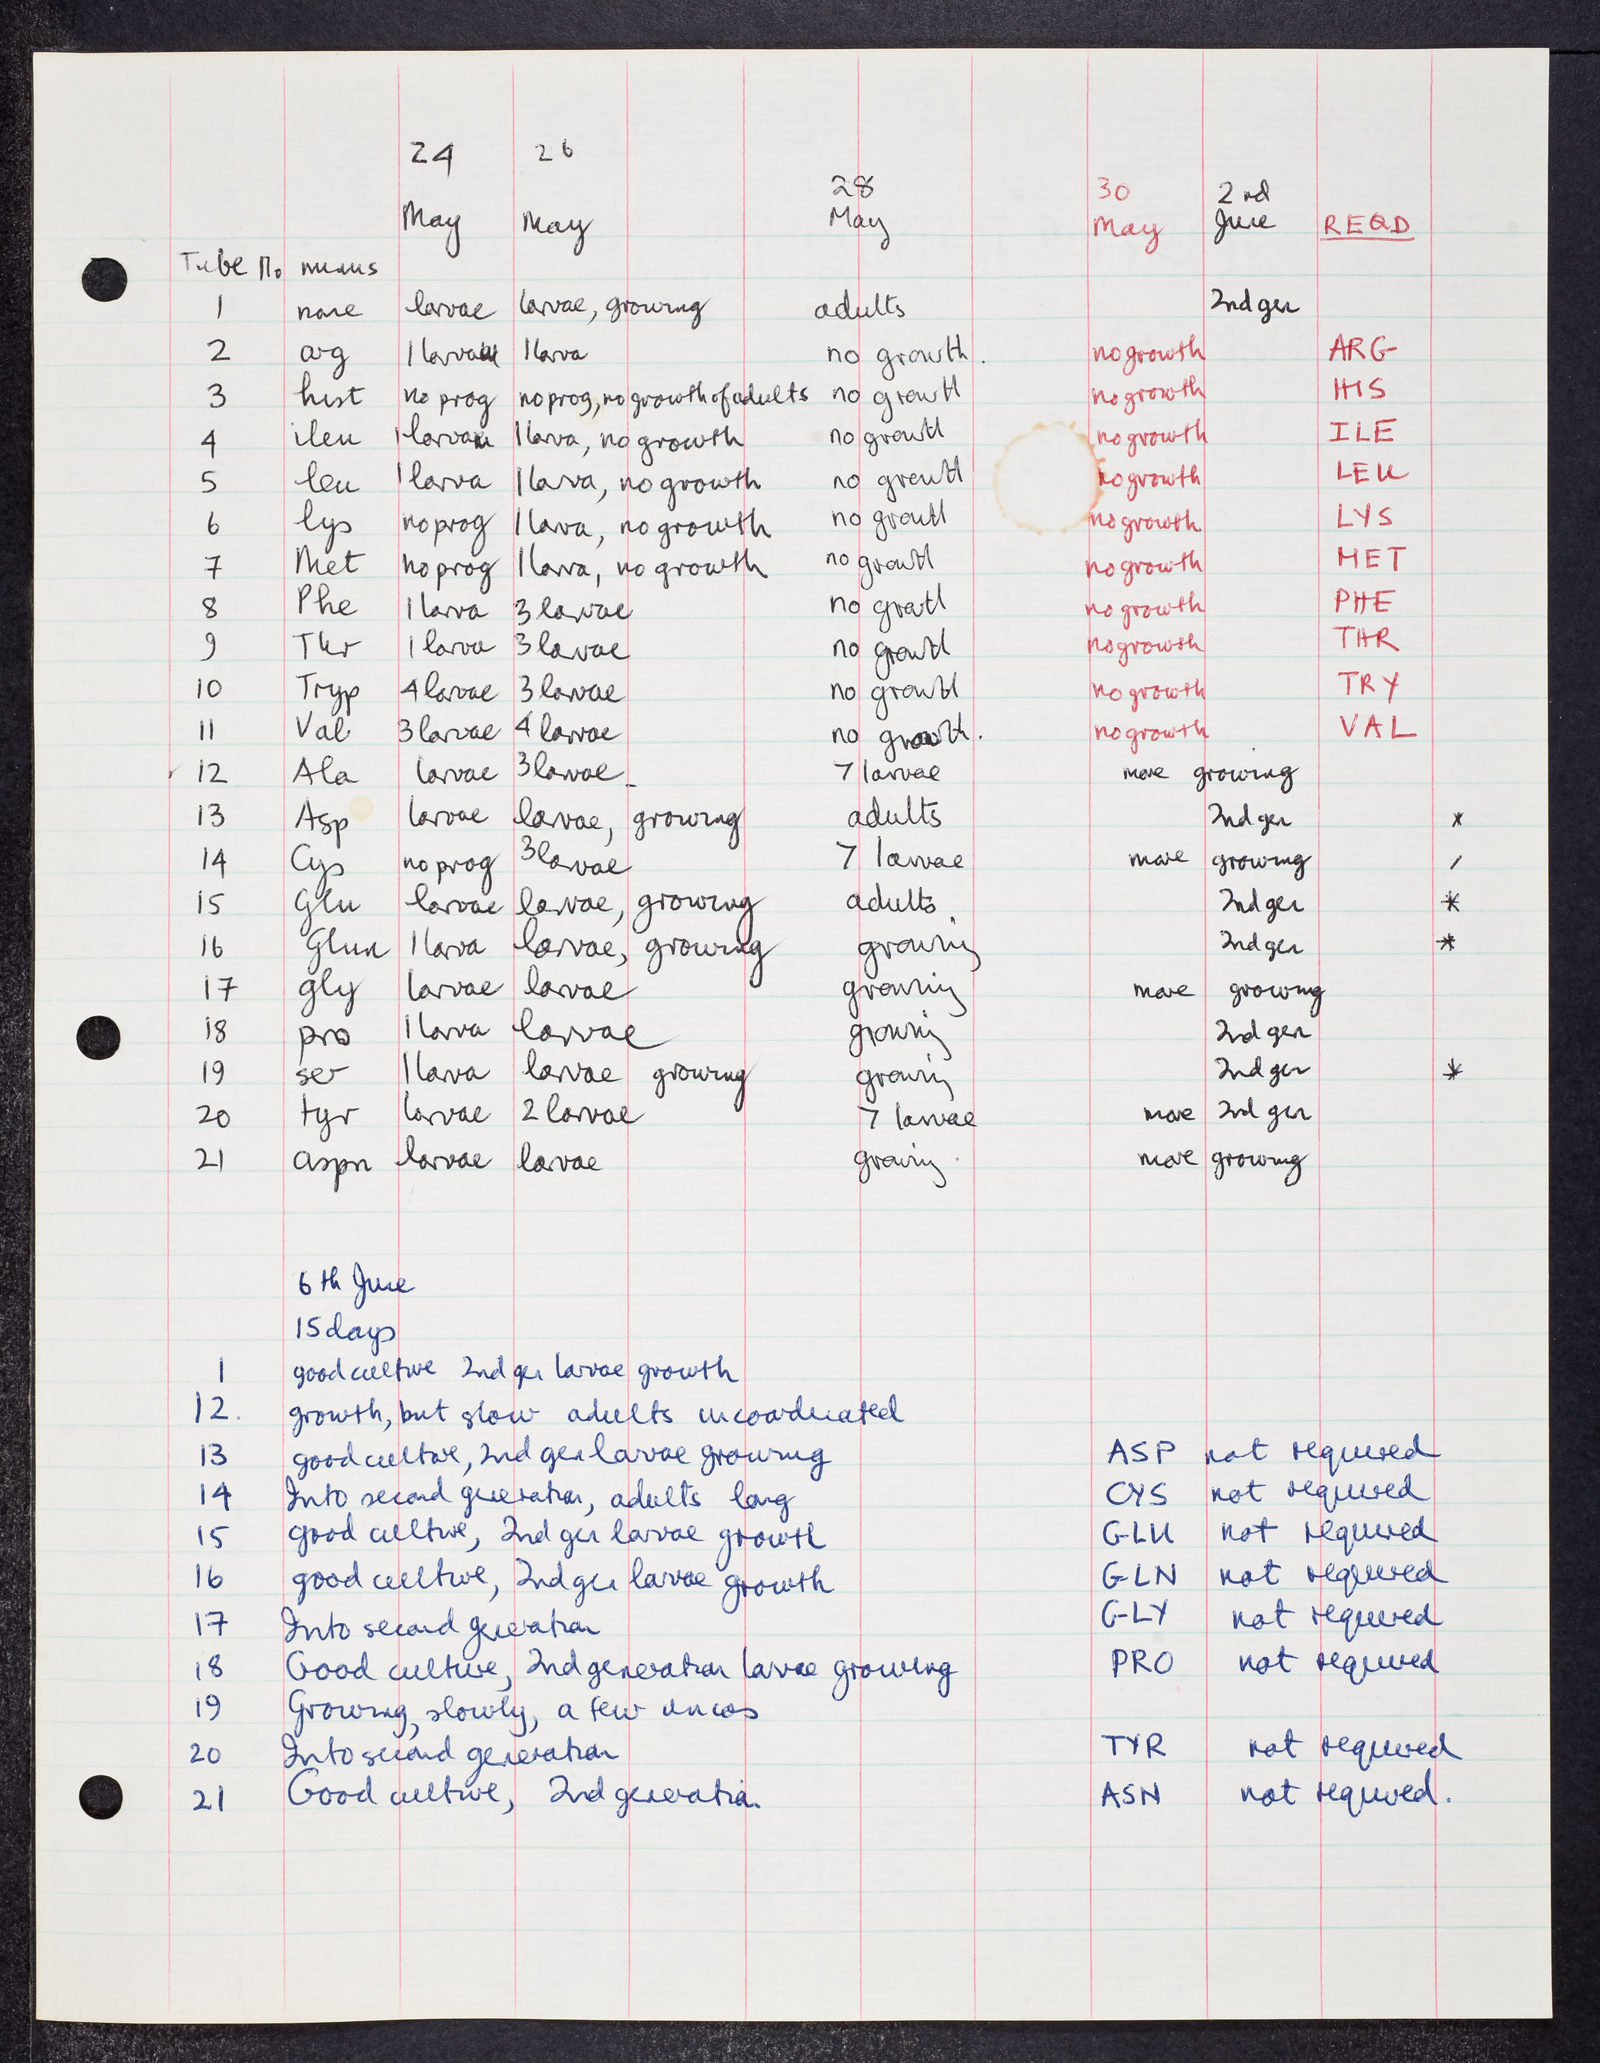 24 26
28 30 2nd
May May May May June REQD
Tube No minus
1 none larvae larvae, growing adults 2nd gen
2 arg 1 larva 1 larva no growth. no growth ARG
3 hist no prog no prog, no growth of adults no growth no growth HIS
4 ileu 1 larva 1 larva, no growth no growth no growth ILE
5 leu 1 larva 1 larva, no growth no growth no growth LEU
6 lys no prog 1 larva, no growth no growth no growth LYS
7 Met no prog 1 larva, no growth no growth no growth MET
8 Phe 1 larva 3 larvae no growth no growth PHE
9 Thr 1 larva 3 larvae no growth no growth THR
10 Tryp 4 larvae 3 larvae no growth no growth TRY
11 Val 3 larvae 4 larvae no growth. no growth VAL
12 Ala larvae 3 larvae 7 larvae more growing
13 Asp larvae larvae, growing adults 2nd gen *
14 Cys no prog 3 larvae 7 larvae more growing /
15 Glu larvae larvae, growing adults 2nd gen *
16 Glun 1 larva larvae, growing growing 2nd gen *
17 gly larvae larvae growing more growing
18 pro 1 larva larvae growing 2nd gen
19 ser 1 larva larvae growing growing 2nd gen *
20 tyr larvae 2 larvae 7 larvae more 2nd gen
21 aspn larvae larvae growing. more growing
6th June
15 days
1 good culture 2nd gen larvae growth
12. growth, but slow adults uncoordinated
13 good culture, 2nd gen larvae growing ASP not required
14 Into second generation, adults long CYS not required
15 good culture, 2nd gen larvae growth GLU not required
16 good culture, 2nd gen larvae growth GLN not required
17 Into second generation GLY not required
18 Good culture, 2nd generation larvae growing PRO not required
19 Growing, slowly, a few uncos
20 Into second generation TYR not required
21 Good culture, 2nd generation. ASN not required.